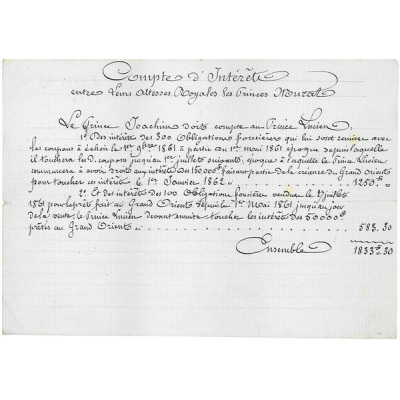 Compte d'Intérêts
entre Leurs Altesses Royales les Princes Murat
Le Prince Joachim doit compte au Prince Lucien
1º Des intérêts des 300 Obligations foncières qui lui sont remises avec
les coupons à échoir le 1er 9bre 1861 à partir du 1er mai 1861 époque depuis laquelle
il touchera lesd. coupons jusqu'au 1er juillet suivant, époque à laquelle le Prince Lucien
commencera à avoir droit aux intérêts des 150000f faisant partie de la créance du Grand Orient
pour toucher ces intérêts le 1er Janvier 1862 1250. "
2º Et des intérêts des 100 Obligations foncières vendues le 2 juillet
1861 pour le prêt fait au Grand Orient depuis le 1er Mai 1861 jusqu'au jour
de la vente, le Prince Lucien devant ensuite toucher les intérêts des 50000f
prêtés au Grand Orient 583. 30
Ensemble 1833f 30